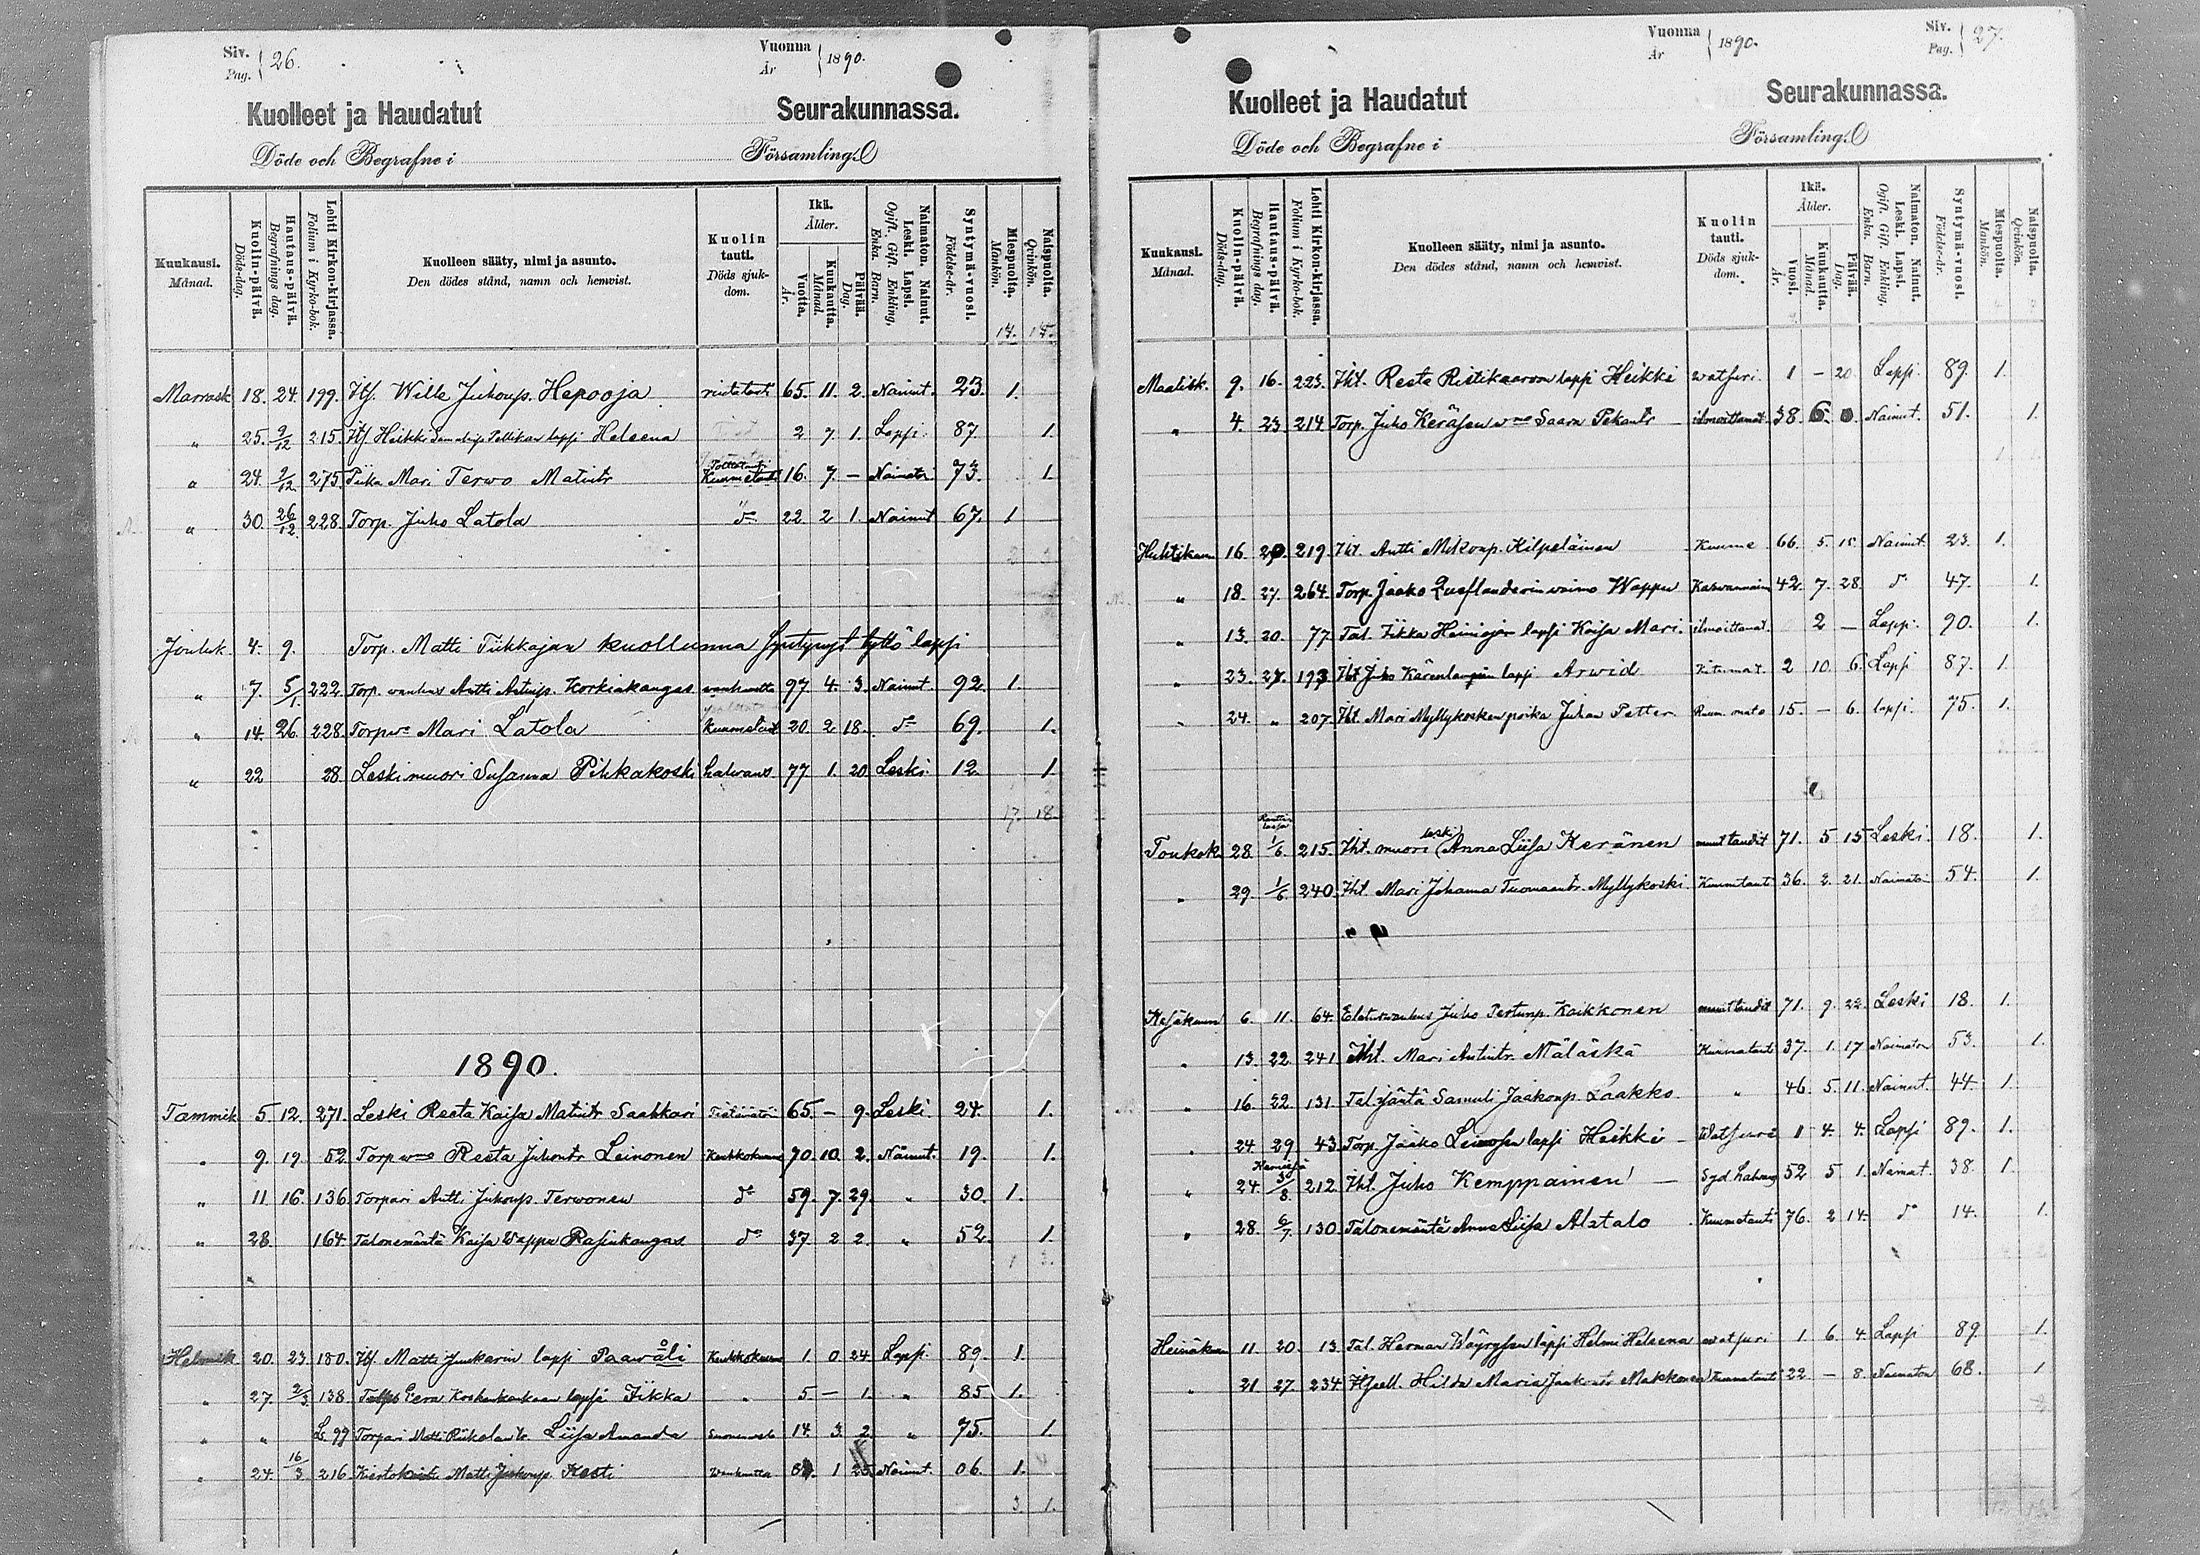 Siv. Pag. 26. Vuonna År 1890.
Kuolleet ja Haudatut Seurakunnassa.
Döde och Begrafne i Församling.
Kuukausi. Månad.
Kuolin-päivä. Döds-dag.
Hautaus-päivä. Begrafnings dag.
Lehti Kirkon-kirjassa. Folium i Kyrko-bok.
Kuolleen sääty, nimi ja asunto. Den dödes stånd, namn och hemvist.
Kuolin tauti. Döds sjuk-dom.
Ikä. Ålder.
Vuotta. År.
Kuukautta. Månad.
Päivää. Dag.
Naimaton. Nainut. Leski. Lapsi. Ogift. Gift. Enkling. Enka. Barn.
Syntymä-vuosi. Födelse-år.
Miespuolta. Mankön.
Naispuolta. Qvinkön.
14. 15.
Marrask 18. 24. 199. Itf. Wille Juhonp. Hepooja 65. 11. 2. Nainut. 23. 1.
" 25. 2/12 215. Itf. Heikki lapsi Heleena 2 7. 1. Lapsi. 87. 1.
" 24. 2/12 275. Piika Mari Terwo Matintr Kuumetauti 16. 7. – Naimatoin 73. 1.
" 30. 26/12 228. Torp. Juho Latola do 22 2 1. Nainut 67. 1
Jouluk. 4. 9. Torp. Matti Tiikkajan kuollunna syntynyt tyttö lapsi
" 7. 5/1. 222. Torp. wanhus Antti Antinp. Korkiakangas wanhuutta 97 4. 3. Nainut. 92. 1.
" 14. 26. 228. Torpwo Mari Latola Kuumetaut 20. 2 18. do 69. 1.
" 22 28. Leskimuori Susanna Pihkakoski halwaus 77 1. 20 Leski. 12 1.
17. 18.
1890.
Tammik 5. 12. 271. Leski Reeta Kaisa Matintr Saahkari 65. – 9. Leski. 24. 1.
" 9. 19. 52. Torp wmo Reeta Juhontr Leinonen Keuhkokuume 70. 10. 2. Nainut. 19. 1.
" 11 16. 136. Torpari Antti Juhonp. Terwonen do 59. 7. 29. " 30. 1.
" 28. 164. Talonemäntä Kaisa Wappu Rasinkangas do 37 2 2. " 52. 1.
1 3.
Helmik 20. 23. 180. Itf. Matti Junkarin lapsi Paawali Keuhkokuume 1. 0 24. Lapsi. 89. 1.
" 27. 2/3 138. Eera lapsi Iikka " 5 – 1. " 85 1.
" " L. 99 Torpari Matti Liisa Amanda 14. 3. 2. " 75. 1.
" 24. 16/3 216 Matti Kesti Wanhuutta 1 25 Nainut. 06. 1.
3. 1.
Siv. Pag. 27. Vuonna År 1890.
Kuolleet ja Haudatut Seurakunnassa.
Döde och Begrafne i Församling.
Kuukausi. Månad.
Kuolin-päivä. Döds-dag.
Hautaus-päivä. Begrafnings dag.
Lehti Kirkon-kirjassa. Folium i Kyrko-bok.
Kuolleen sääty, nimi ja asunto. Den dödes stånd, namn och hemvist.
Kuolin tauti. Döds sjuk-dom.
Ikä. Ålder.
Vuosi. År.
Kuukautta. Månad.
Päivää. Dag.
Naimaton. Nainut. Leski. Lapsi. Ogift. Gift. Enkling. Enka. Barn.
Syntymä-vuosi. Födelse-år.
Miespuolta. Mankön.
Naispuolta. Qvinkön.
Maalisk. 9. 16. 223. Iht. Reeta Ristikaaron lapsi Heikki watsuri. 1 – 20. Lapsi. 89. 1.
" 4. 23 214 Torp. Juho Keräsen wmo Saara Pekantr ilmoittamat. 38. 6. 0. Nainut. 51. 1.
Huhtikuun 16. 219. Iht. Antti Mikonp. Kilpeläinen Kuume 66. 5. 15. Nainut. 23. 1.
" 18. 27. 264. Torp. Jaako waimo Wappu 42. 7. 28. do 47. 1.
" 13. 20. 77. Tal. Iikka Heiniojan lapsi Kaisa Mari. ilmoittamat. 2 – Lapsi. 90. 1.
" 23. 27. 193 Iht Juho lapsi Arwid 2 10. 6. Lapsi 87. 1.
" 24. " 207. Iht. Mari Myllykosken poika Juhan Petter 15. – 6. lapsi. 75. 1.
Toukok 28. 1/6. 215. Iht. muori (leski) Anna Liisa Keränen muut taudit 71. 5 15 Leski. 18. 1.
" 29. 1/6. 240. Iht. Mari Johanna Tuomaantr. Myllykoski Kuumetaut 36. 2. 21. Naimatoi 54. 1.
Kesäkuun 6. 11. 64. Juho Pertunp. Kaikkonen muut taudit 71. 9. 22. Leski 18. 1.
" 13. 22. 241. Iht. Mari Antintr. Mäläskä Kuumetaut 37. 1. 17 Naimaton 53. 1.
" 16. 22. 131. Tal. isäntä Samuli Jaakonp. Laakko. " 46. 5. 11. Nainut. 44. 1.
" 24. 29. 43. Torp. Jaako Leinosen lapsi Heikki – Watsuri 1 4. 4. Lapsi 89. 1.
" 24. 30/8. 212. Iht. Juho Kemppainen – Syd. halwaus 52 5 1. Nainut. 38. 1
" 28. 6/7. 130. Talonemäntä Anna Liisa Alatalo Kuumetauti 76. 2 14. do 14. 1.
Heinäkuun 11 20. 13. Tal. Herman Wäyrysen lapsi Helmi Heleena watsuri 1. 6. 4. Lapsi 89. 1.
" 21 27. 234. Itsell. Hilda Maria Jaakontr Makkonen Kuumetauti 22 – 8. Naimaton 68. 1